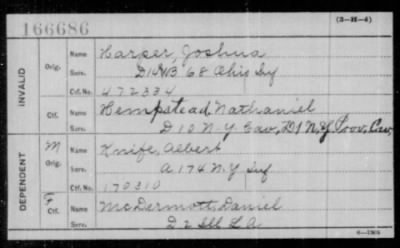 (3-H-4)
166686
INVALID
Orig. Name Harper, Joshua
Serv. D 147 & B 68 Ohio Inf
Ctf. No. 472334
Ctf. Name Hempstead, Nathaniel
Serv. D 10 N.Y. Cav, D 1 N.Y. Prov. Cav.
DEPENDENT
M Orig. Name Knife, Albert
Serv. A 174 N.Y. Inf
Ctf. No. 170310
F Ctf. Name McDermott, Daniel
Serv. D 2 Ill L A